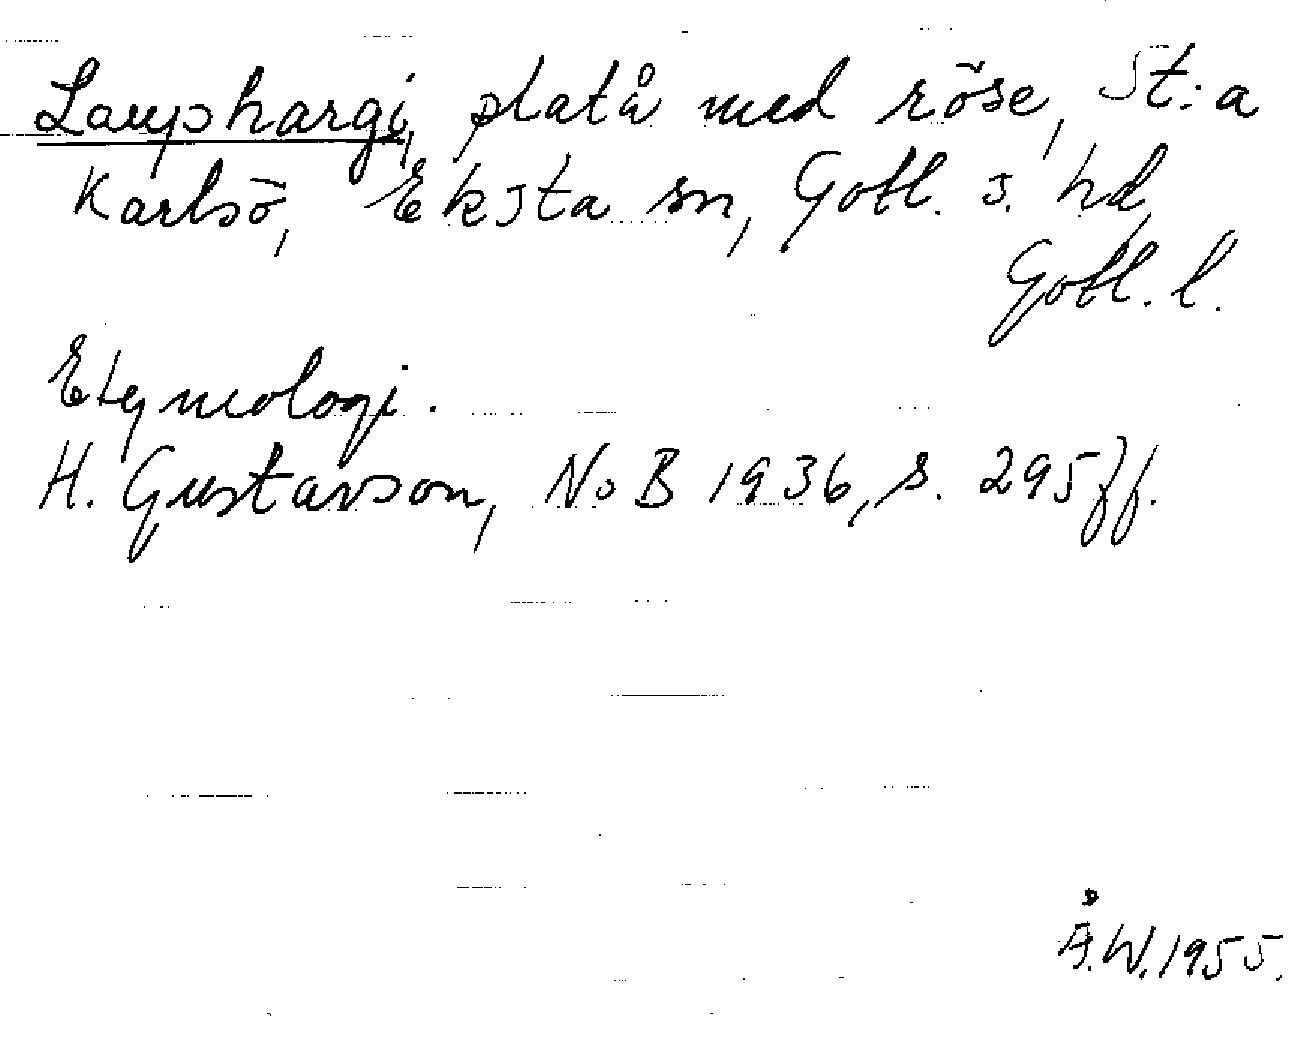 Lauphargi, platå med röse, St:a
Karlsö, Eksta sn, Gotl. s. hd,
Gotl. l.
Etymologi.
H. Gustavson, NoB 1936, s. 295 ff.
Å.W. 1955.